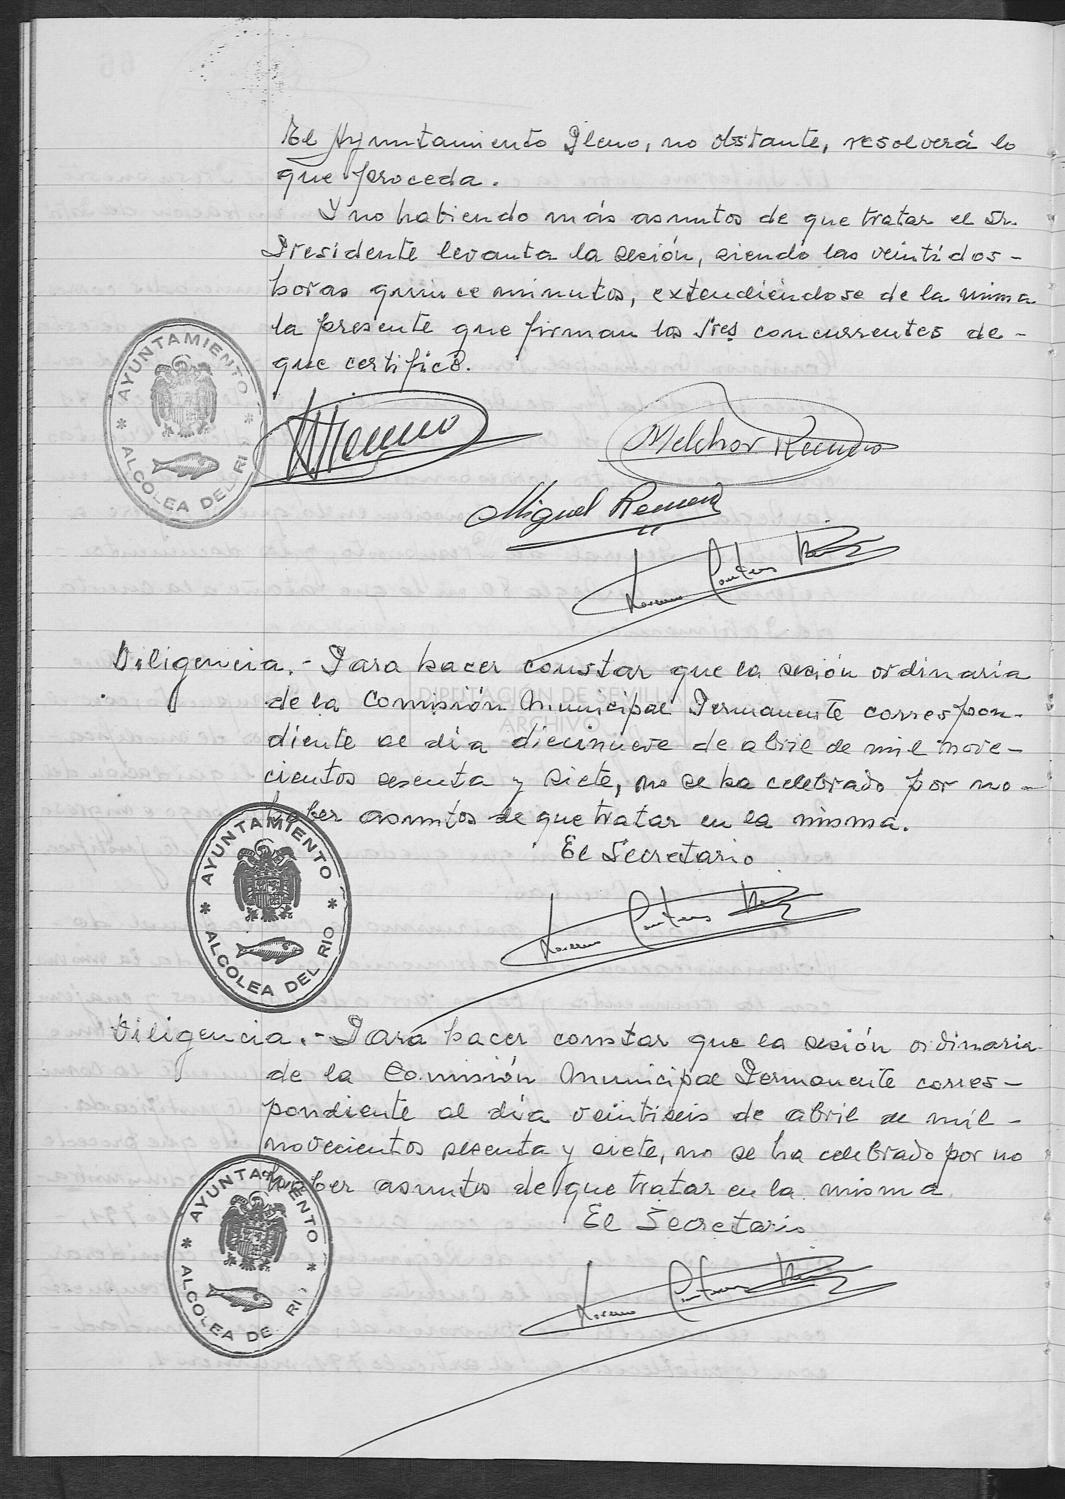 El Ayuntamiento Pleno, no obstante, resolverá lo
que proceda.
Y no habiendo más asuntos de que tratar el Sr.
Presidente levanta la sesión, siendo las veintidos-
horas quince minutos, extendiéndose de la misma
la presente que firman los Sres concurrentes de-
que certifico.
AYUNTAMIENTO
* *
ALCOLEA DEL RI
Melchor Romero
Miguel Romero
Diligencia.- Para hacer constar que la sesión ordinaria
de la Comisión Municipal Permanente correspon-
DIPUTACIÓN DE SEVILLA
ARCHIVO
diente al día diecinueve de abril de mil nove-
cientos sesenta y siete, no se ha celebrado por no-
haber asuntos de que tratar en la misma.
El Secretario
AYUNTAMIENTO
* *
ALCOLEA DEL RIO
Diligencia.- Para hacer constar que la sesión ordinaria
de la Comisión Municipal Permanente corres-
pondiente al día veintiseis de abril de mil-
novecientos sesenta y siete, no se ha celebrado por no
haber asuntos de que tratar en la misma
El Secretario
AYUNTAMIENTO
* *
ALCOLEA DE. RI,